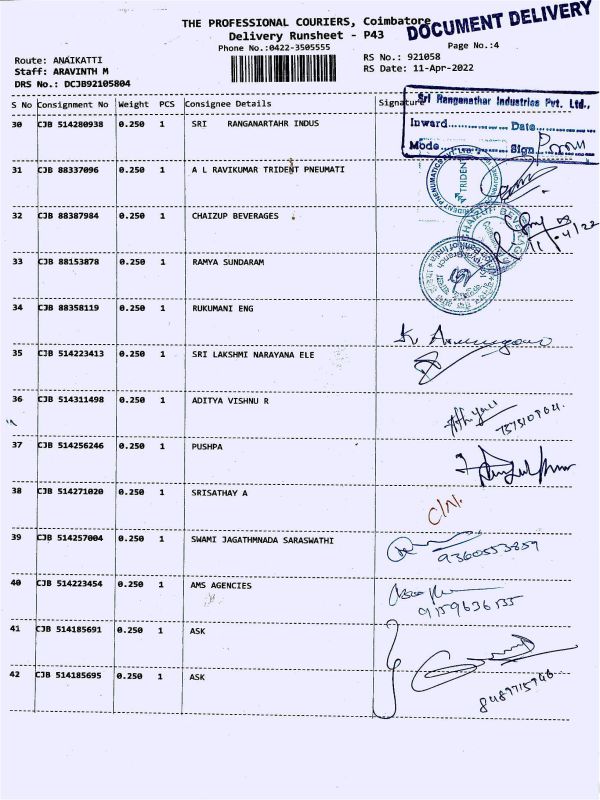 THE PROFESSIONAL COURIERS, Coimbatore
DOCUMENT DELIVERY
Delivery Runsheet - P43
Phone No.:0422-3505555
Page No.:4
Route: ANAIKATTI
RS No.: 921058
Staff: ARAVINTH M
RS Date: 11-Apr-2022
DRS No.: DCJB92105804
S No Consignment No Weight PCS Consignee Details Signature
Sri Ranganathar Industries Pvt. Ltd.,
Inward.............. Date..............
Mode.............. Sign
30 CJB 514280938 0.250 1 SRI RANGANARTAHR INDUS
31 CJB 88337096 0.250 1 A L RAVIKUMAR TRIDENT PNEUMATI
TRIDENT
32 CJB 88387984 0.250 1 CHAIZUP BEVERAGES
11/04/22
33 CJB 88153878 0.250 1 RAMYA SUNDARAM
34 CJB 88358119 0.250 1 RUKUMANI ENG
35 CJB 514223413 0.250 1 SRI LAKSHMI NARAYANA ELE
36 CJB 514311498 0.250 1 ADITYA VISHNU R
37 CJB 514256246 0.250 1 PUSHPA
38 CJB 514271020 0.250 1 SRISATHAY A
39 CJB 514257004 0.250 1 SWAMI JAGATHMNADA SARASWATHI
9360553859
40 CJB 514223454 0.250 1 AMS AGENCIES
9159636135
41 CJB 514185691 0.250 1 ASK
42 CJB 514185695 0.250 1 ASK